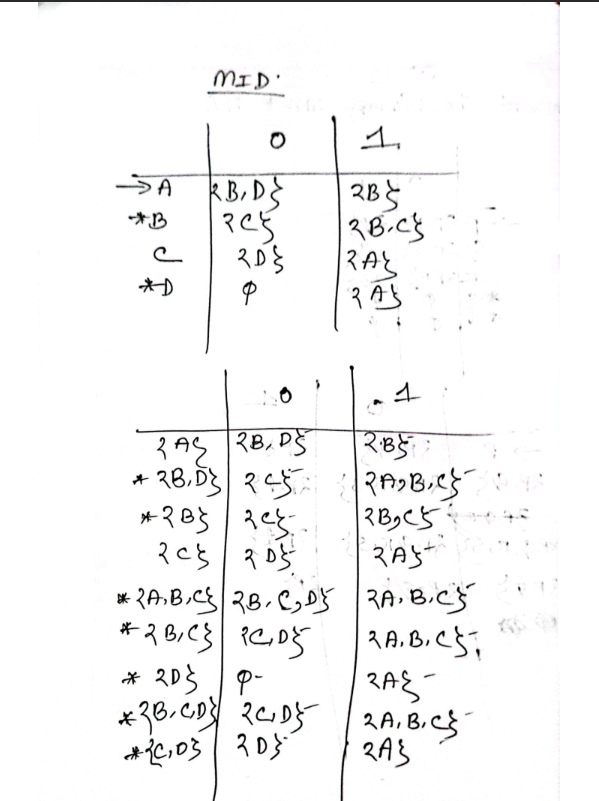 MID.
0 1
→A {B,D} {B}
*B {C} {B,C}
C {D} {A}
*D φ {A}
0 1
{A} {B,D} {B}
* {B,D} {C} {A,B,C}
*{B} {C} {B,C}
{C} {D} {A}
*{A,B,C} {B,C,D} {A,B,C}
* {B,C} {C,D} {A,B,C}
* {D} φ {A}
*{B,C,D} {C,D} {A,B,C}
*{C,D} {D} {A}